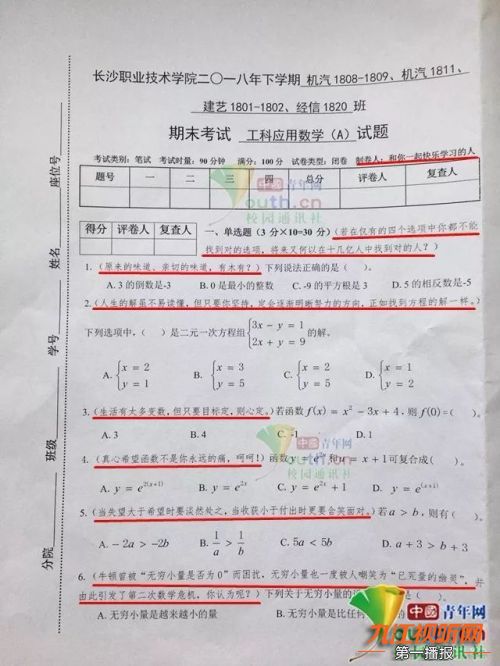 长沙职业技术学院二〇一八年下学期 机汽1808-1809、机汽1811、
建艺1801-1802、经信1820 班
期末考试 工科应用数学(A) 试题
考试类别:笔试 考试时量:90分钟 满分:100分 试卷类型:闭卷 制卷人:和你一起快乐学习的人
题号 一 二 三 四 总分 评卷人 复查人
得分 评卷人 复查人
一、单选题(3分×10=30分)(若在仅有的四个选项中你都不能
找到对的选项,将来又何以在十几亿人中找到对的人?)
1.(原来的味道、亲切的味道,有木有?)下列说法正确的是( )。
A. 3的倒数是-3 B. 0是最小的整数 C. -9的平方根是3 D. 5的相反数是-5
2.(人生的解虽不易读懂,但只要你坚持,定会逐渐明晰努力的方向,正如找到方程的解一样。)
下列选项中,( )是二元一次方程组{3x − y = 1
2x + y = 9 的解。
A. {x = 2
y = 1
B. {x = 3
y = 5
C. {x = 2
y = 5
D. {x = 1
y = 2
3.(生活有太多变数,但只要目标定,则心定。)若函数 f(x) = x² − 3x + 4,则 f(0)=( )。
A. 3 B. 4 C. -1 D. 1
4.(真心希望函数不是你永远的痛,呵呵!)函数 和 u = x + 1 可复合成( )。
5.(当失望大于希望时要淡然处之,当收获小于付出时更要会笑面对。)若 a > b,则有( )。
A. − 2a > −2b B. 1/a > 1/b C. 5a < 5b D. a + 3 > b + 3
6.(牛顿曾被“无穷小量是否为0”而困扰,无穷小量也一度被人嘲笑为“已死量的幽灵”,并
由此引发了第二次数学危机,你认为呢?)下列关于无穷小量的
A. 无穷小量是越来越小的量 B. 无穷小量是比任何
座位号
姓名
学号
班级
分院
中國青年网
youth.cn
校园通讯社
中國青年网
youth.cn
校园通讯社
中國青年网
九江视听网
第一播报